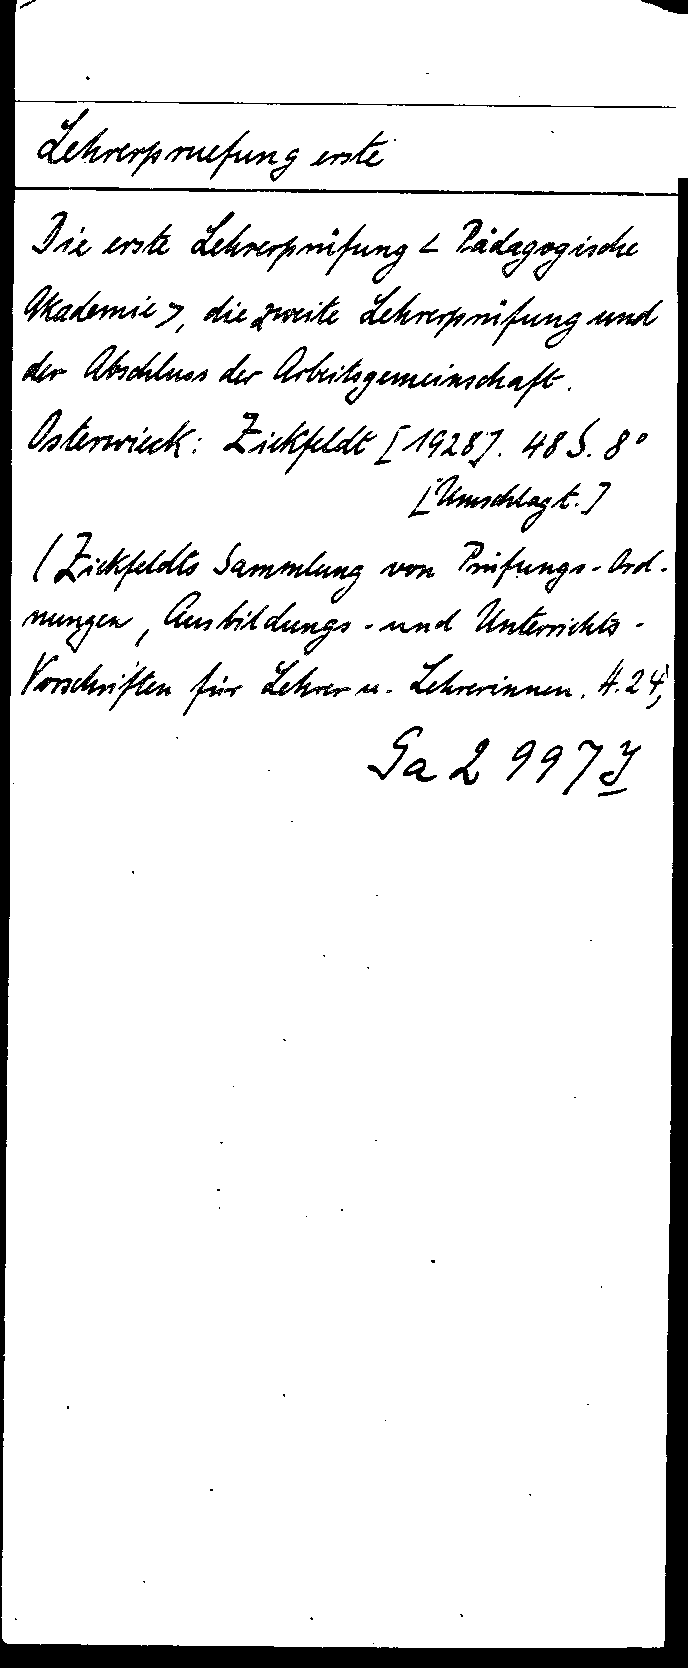 Lehrerpruefung erste
Die erste Lehrerprüfung < Pädagogische
Akademie >, die zweite Lehrerprüfung und
der Abschluss der Arbeitsgemeinschaft.
Osterwieck: Zickfeldt [1928]. 48 S. 8°
[Umschlagt.]
(Zickfeldts Sammlung von Prüfungs-Ord-
nungen, Ausbildungs- und Unterrichts-
Vorschriften für Lehrer u. Lehrerinnen. H. 24)
Sa 2 997 J